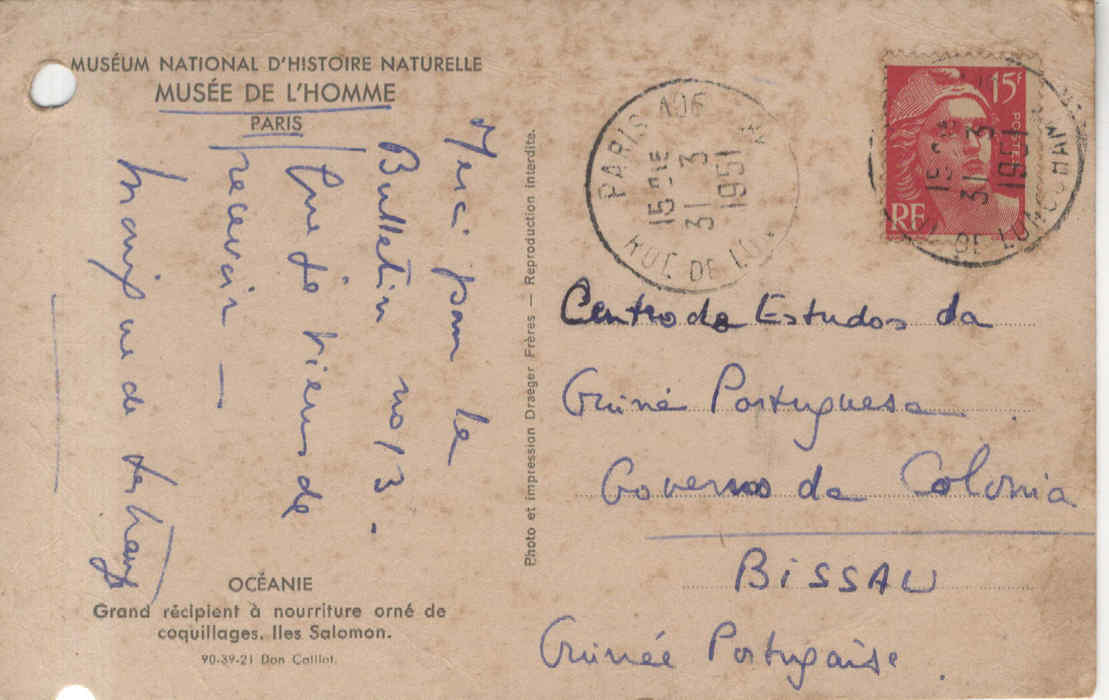 MUSÉUM NATIONAL D'HISTOIRE NATURELLE
MUSÉE DE L'HOMME
PARIS
Merci pour le
Bulletin no 13.
que je viens de
recevoir —
OCÉANIE
Grand récipient à nourriture orné de
coquillages. Iles Salomon.
90-39-21 Don Caillot.
Photo et impression Draeger Frères — Reproduction interdite.
PARIS
15
31 3
1951
RUE DE
15F
POSTES
RF
15
31 3
1951
DE LONGCHAM
Centro de Estudos da
Guiné Portuguesa
Governo da Colonia
BISSAU
Guinée Portugaise